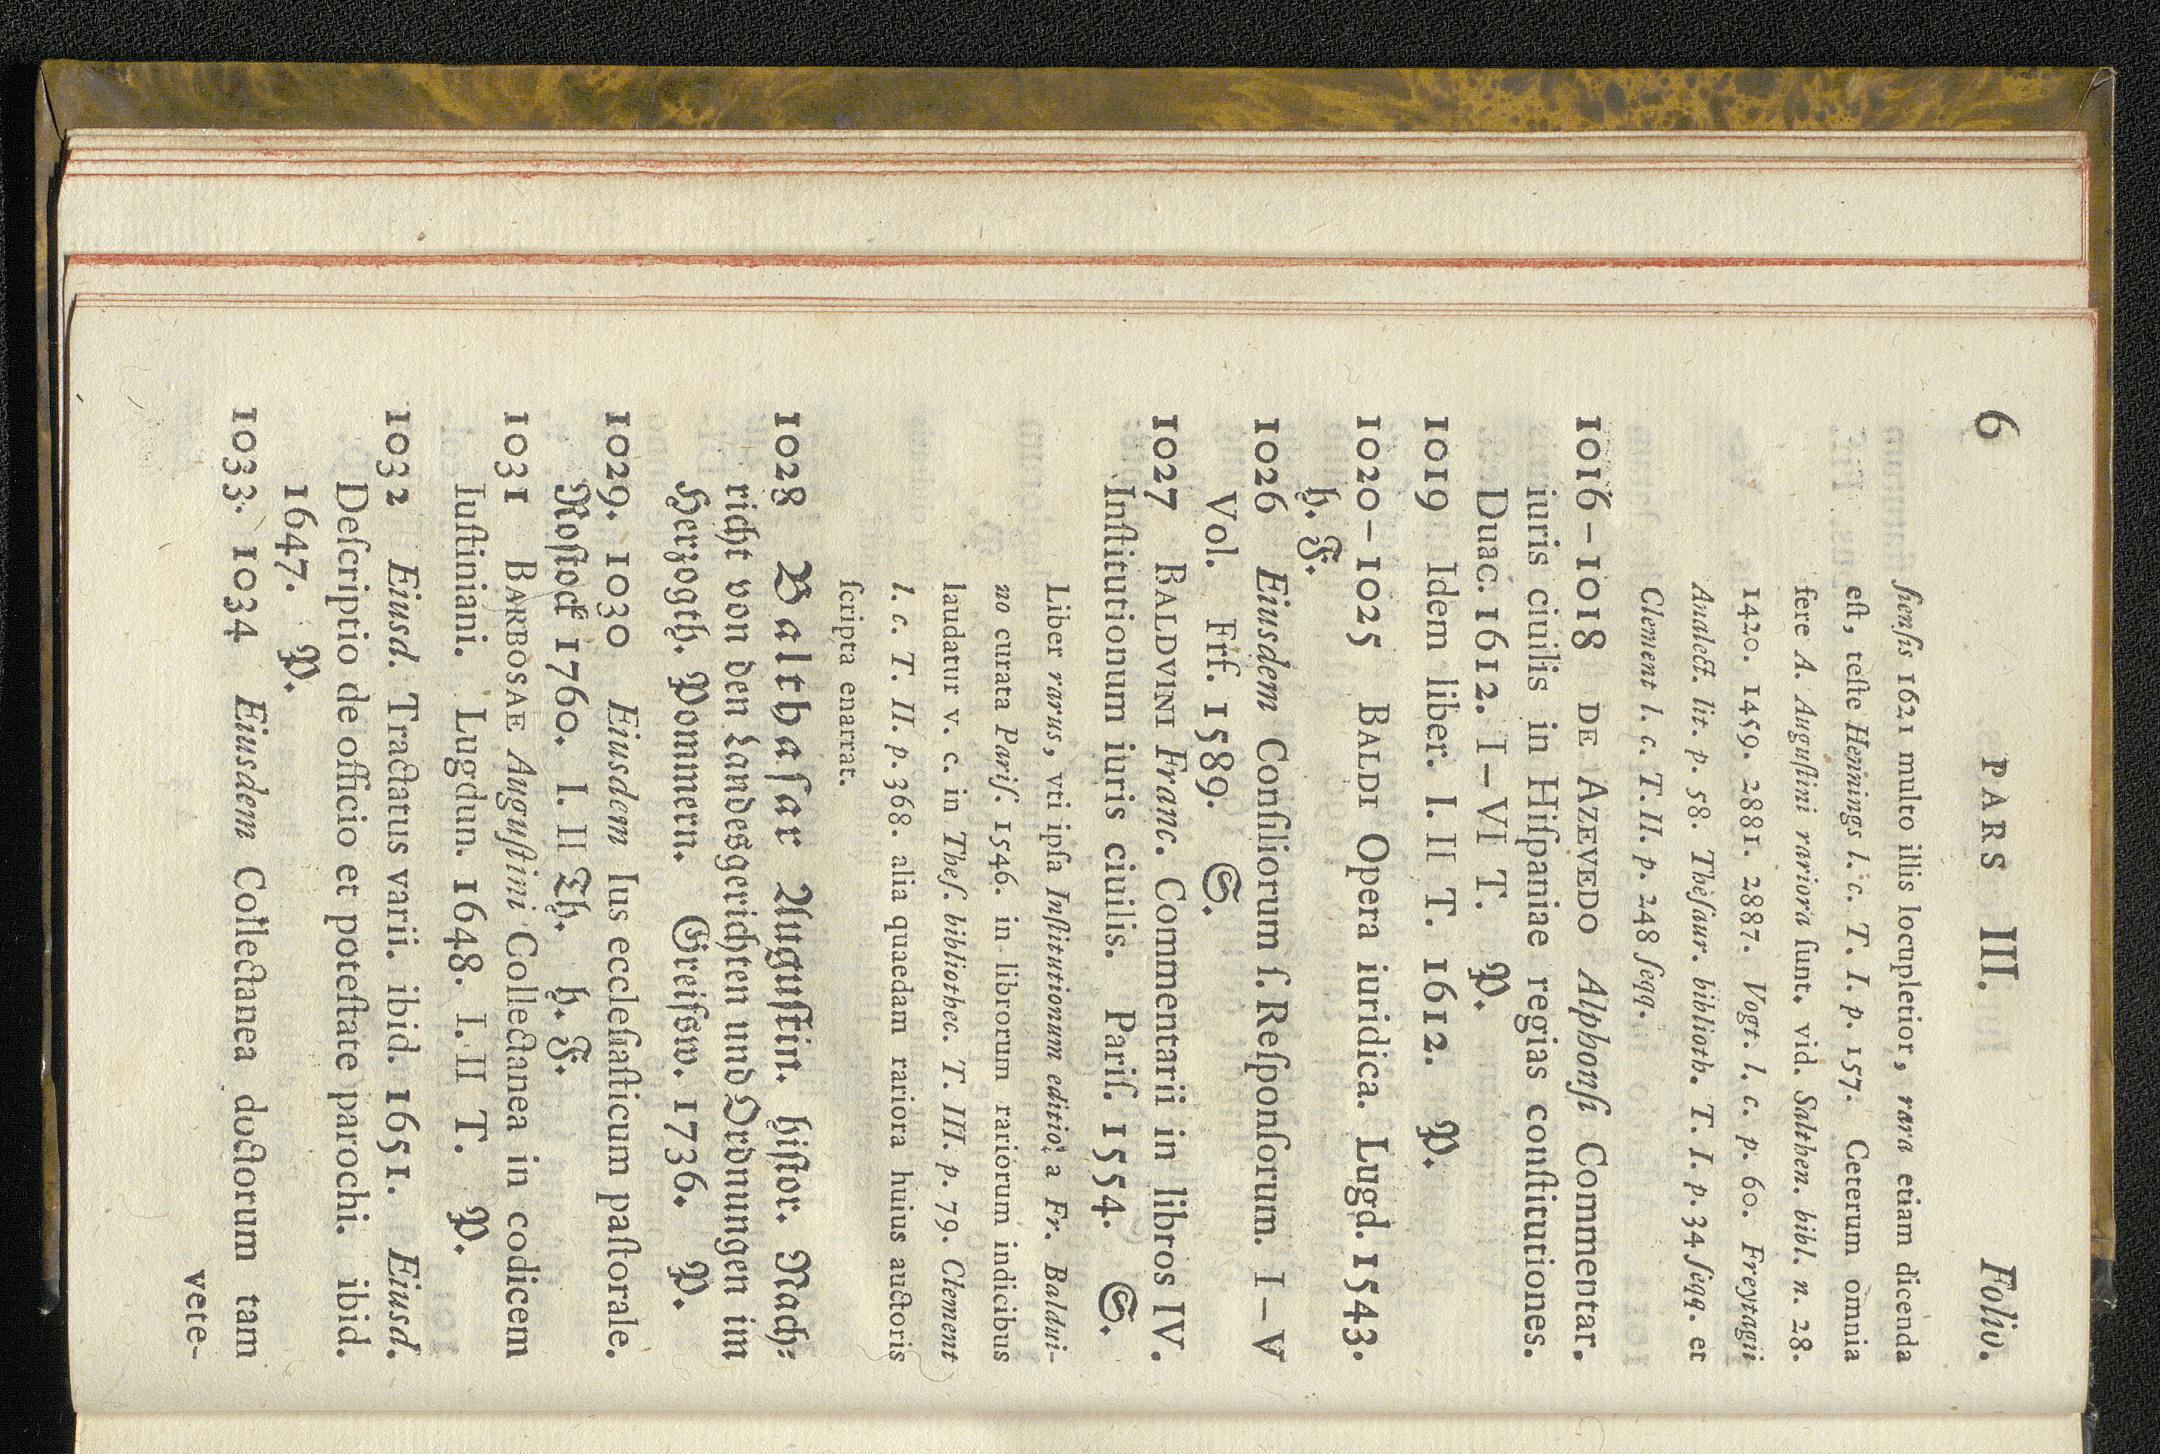 6 PARS III. Folio.
ſienſis 1621 multo illis locupletior, rara etiam dicenda
eſt, teſte Hennings l. c. T. I. p. 157. Ceterum omnia
fere A. Auguſtini rariora ſunt. vid. Salthen. bibl. n. 28.
1420. 1459. 2881. 2887. Vogt. l. c. p. 60. Freytagii
Analect. lit. p. 58. Theſaur. biblioth. T. I. p. 34 ſeqq. et
Clement l. c. T. II. p. 248 ſeqq.
1016–1018 DE AZEVEDO Alphonſi Commentar.
iuris ciuilis in Hiſpaniae regias conſtitutiones.
Duac. 1612. I–VI T. P.
1019 Idem liber. I. II T. 1612. P.
1020–1025 BALDI Opera iuridica. Lugd. 1543.
h. F.
1026 Eiusdem Conſiliorum ſ. Reſponſorum. I–V
Vol. Frf. 1589. S.
1027 BALDVINI Franc. Commentarii in libros IV.
Inſtitutionum iuris ciuilis. Pariſ. 1554. S.
Liber rarus, vti ipſa Inſtitutionum editio, a Fr. Baldui-
no curata Pariſ. 1546. in librorum rariorum indicibus
laudatur v. c. in Theſ. bibliothec. T. III. p. 79. Clement
l. c. T. II. p. 368. alia quaedam rariora huius auctoris
ſcripta enarrat.
1028 Balthaſar Auguſtin. hiſtor. Nach-
richt von den Landesgerichten und Ordnungen im
Herzogth. Pommern. Greifsw. 1736. P.
1029. 1030 Eiusdem Ius eccleſiaſticum paſtorale.
Roſtock 1760. I. II Th. h. F.
1031 BARBOSAE Auguſtini Collectanea in codicem
Iuſtiniani. Lugdun. 1648. I. II T. P.
1032 Eiusd. Tractatus varii. ibid. 1651. Eiusd.
Deſcriptio de officio et poteſtate parochi. ibid.
1647. P.
1033. 1034 Eiusdem Collectanea doctorum tam
vete-